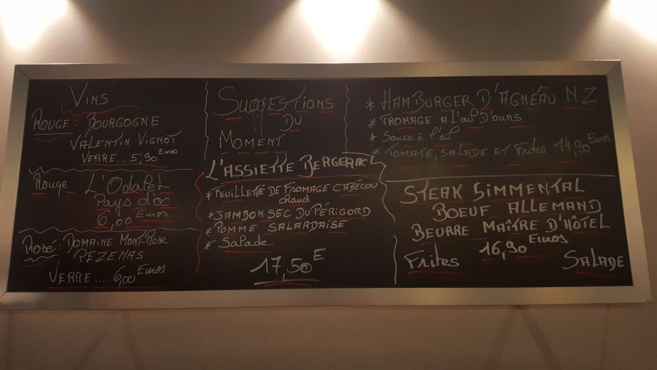 Vins
Rouge: Bourgogne
Valentin Vignot
Verre... 5,90 Euros
Rouge L'Odalet
Pays d'oc
6,00 Euros
Rosé: Domaine Mont Rose
Pezenas
Verre.... 6,00 Euros
Suggestions
Du
Moment
L'Assiette Bergerac
* Feuilleté de Fromage Cabécou
chaud
* Jambon sec du Périgord
* Pomme Salardaise
* Salade
17,50 E
* Hamburger d'Agneau NZ
* Fromage à l'ail d'ours
* Sauce à l'ail
* Tomate, Salade et Frites 14,90 Euros
Steak Simmental
Boeuf Allemand
Beurre Maître d'Hôtel
16,90 Euros
Frites Salade